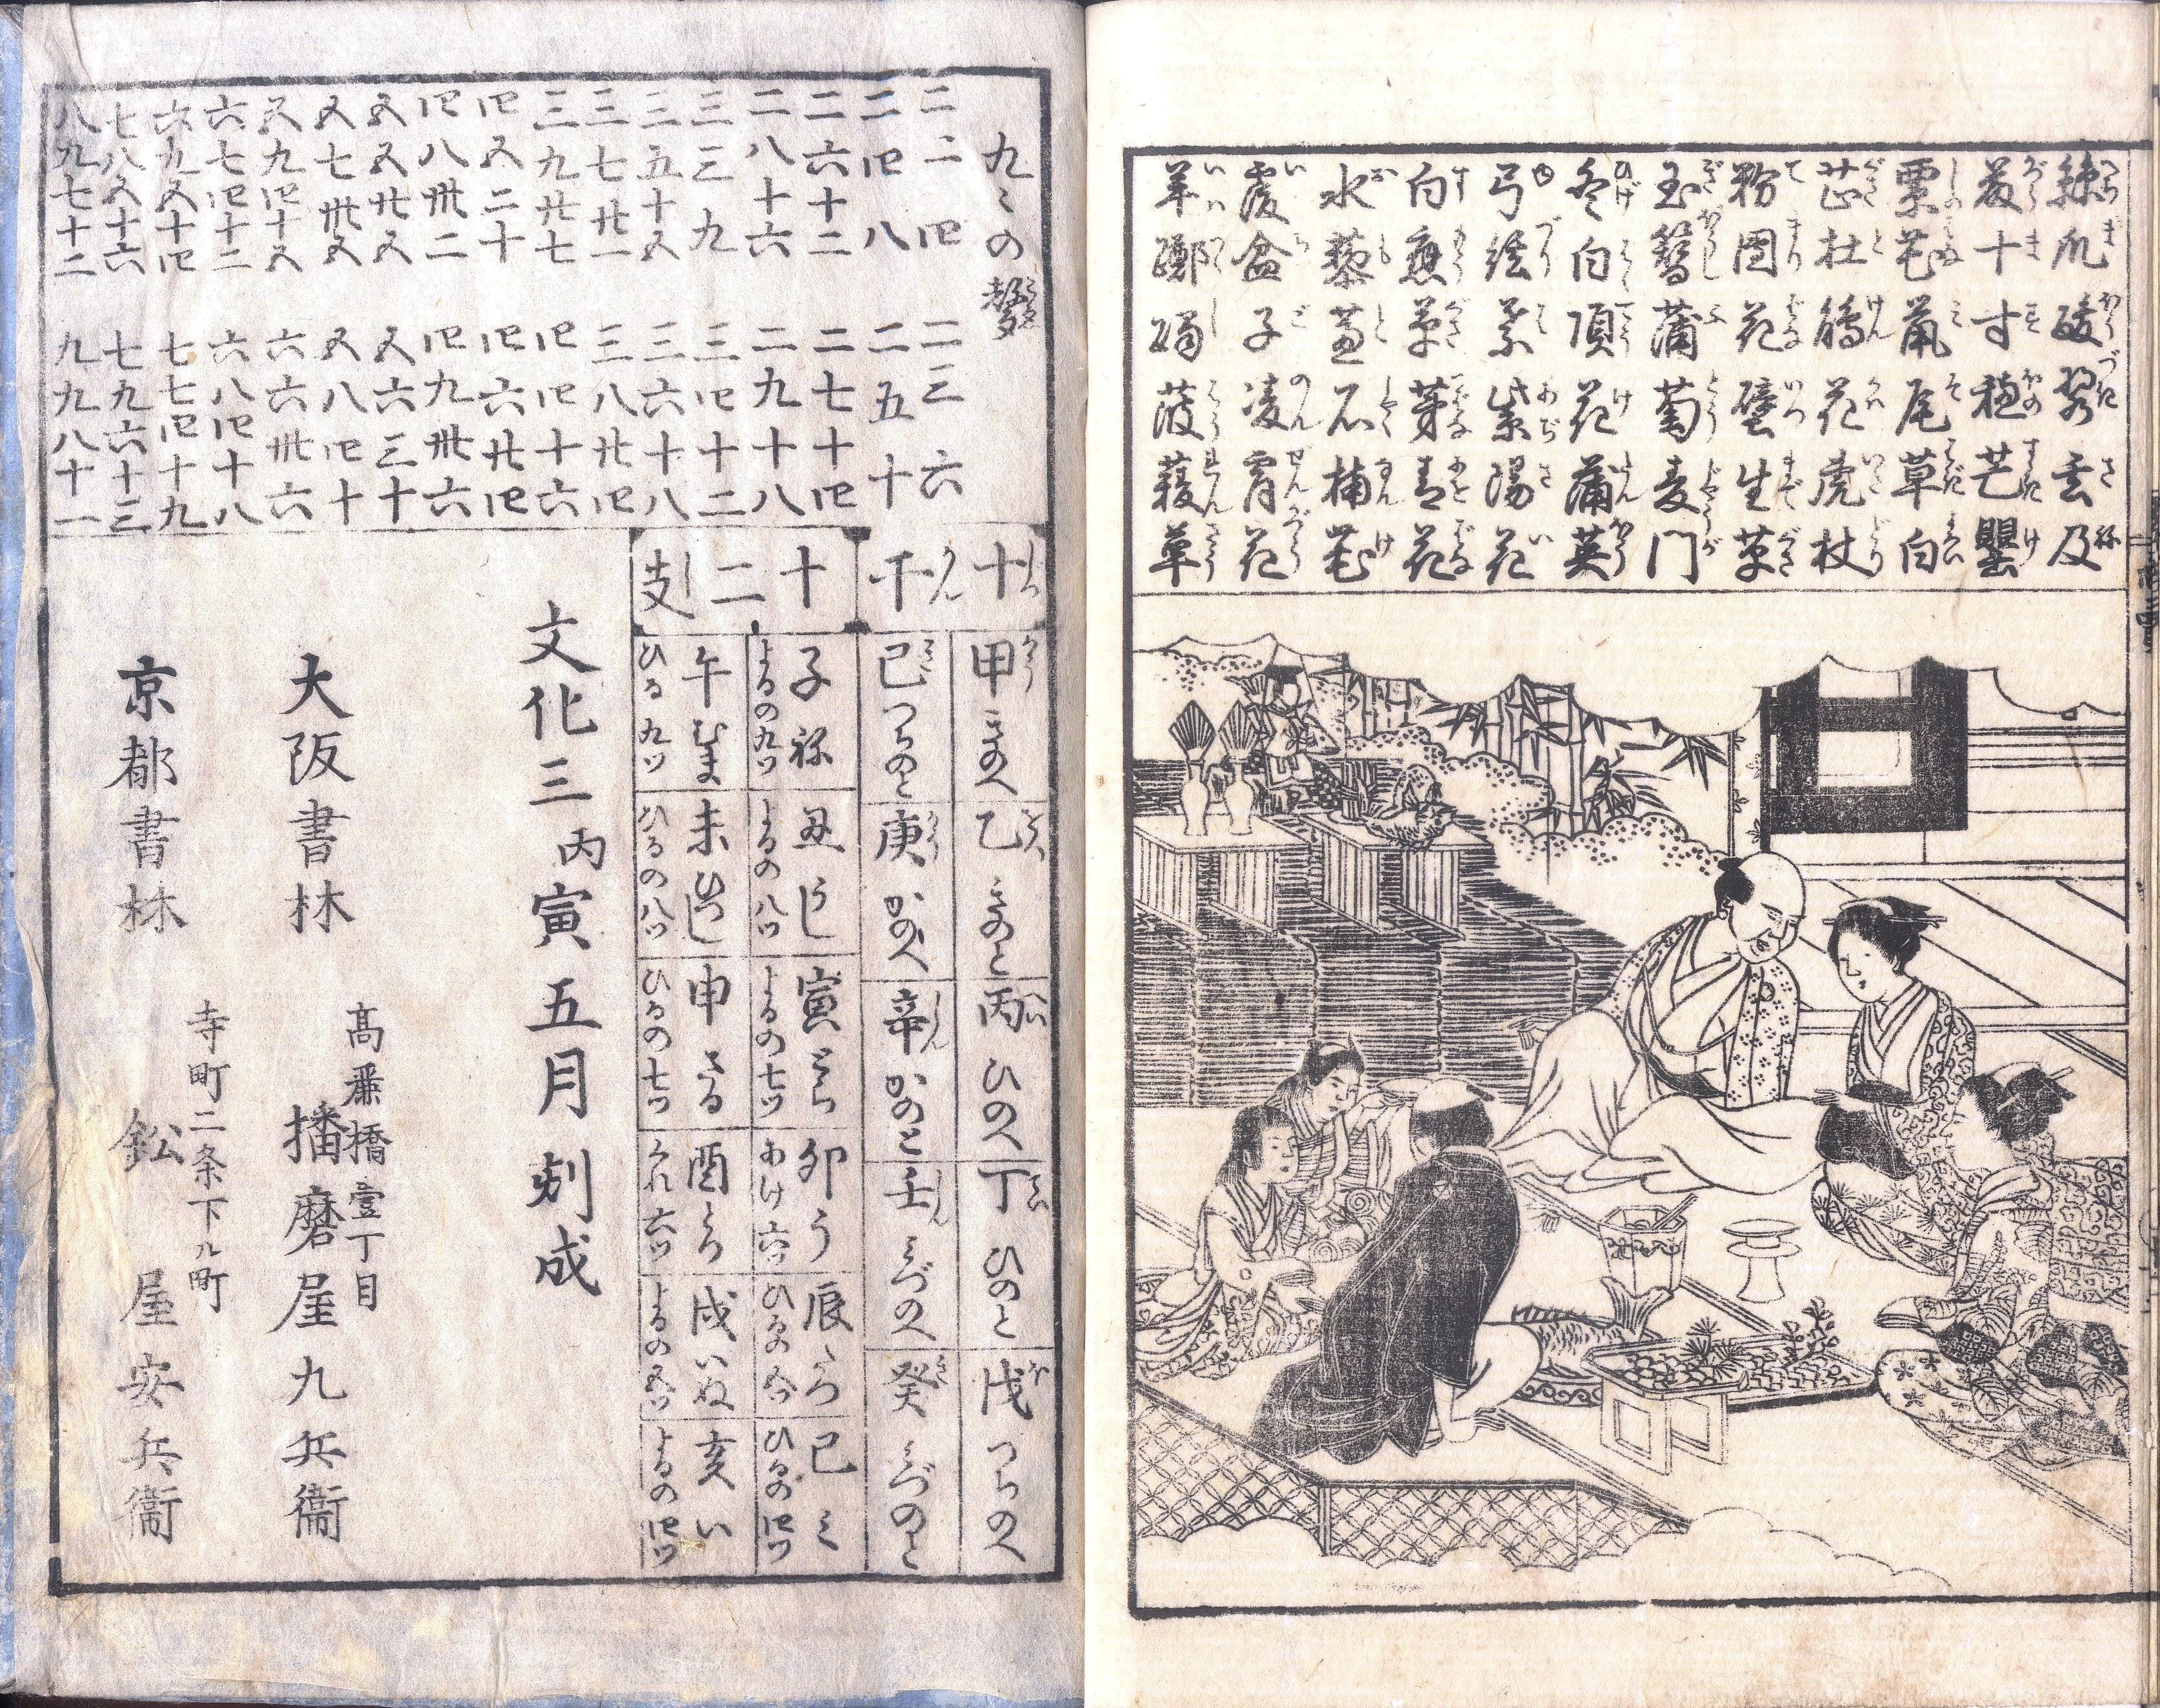 絲瓜酸漿玄及
十寸穂芒罌
粟花鼠尾草白
芷杜鵑花虎杖
粉団花壁生草
玉簪蒲萄麦門
冬白頂花蒲英
弓絃葉紫陽花
白熊草芽青花
水藜蘆石楠花
覆盆子凌霄花
羊躑躅菠薐草
九々の聲
二二四 二三六
二四八 二五十
二六十二 二七十四
二八十六 二九十八
三三九 三四十二
三五十五 三六十八
三七廿一 三八廿四
三九廿七 四四十六
四五二十 四六廿四
四八卅二 四九卅六
五五廿五 五六三十
五七卅五 五八四十
五九四十五 六六卅六
六七四十二 六八四十八
六九五十四 七七四十九
七八五十六 七九六十三
八九七十二 九九八十一
十干
甲 きのへ 乙 きのと 丙 ひのへ 丁 ひのと 戊 つちのへ
己 つちのと 庚 かのへ 辛 かのと 壬 みづのへ 癸 みづのと
十二支
子 ね 丑 うし 寅 とら 卯 う 辰 たつ 巳 み
よるの九ツ よるの八ツ よるの七ツ あけ六ツ ひるの五ツ ひるの四ツ
午 むま 未 ひつじ 申 さる 酉 とり 戌 いぬ 亥 い
ひる九ツ ひるの八ツ ひるの七ツ くれ六ツ よるの五ツ よるの四ツ
文化三丙寅五月刻成
高麗橋壹丁目
大阪書林 播磨屋九兵衞
寺町二条下ル町
京都書林 鈆屋安兵衞